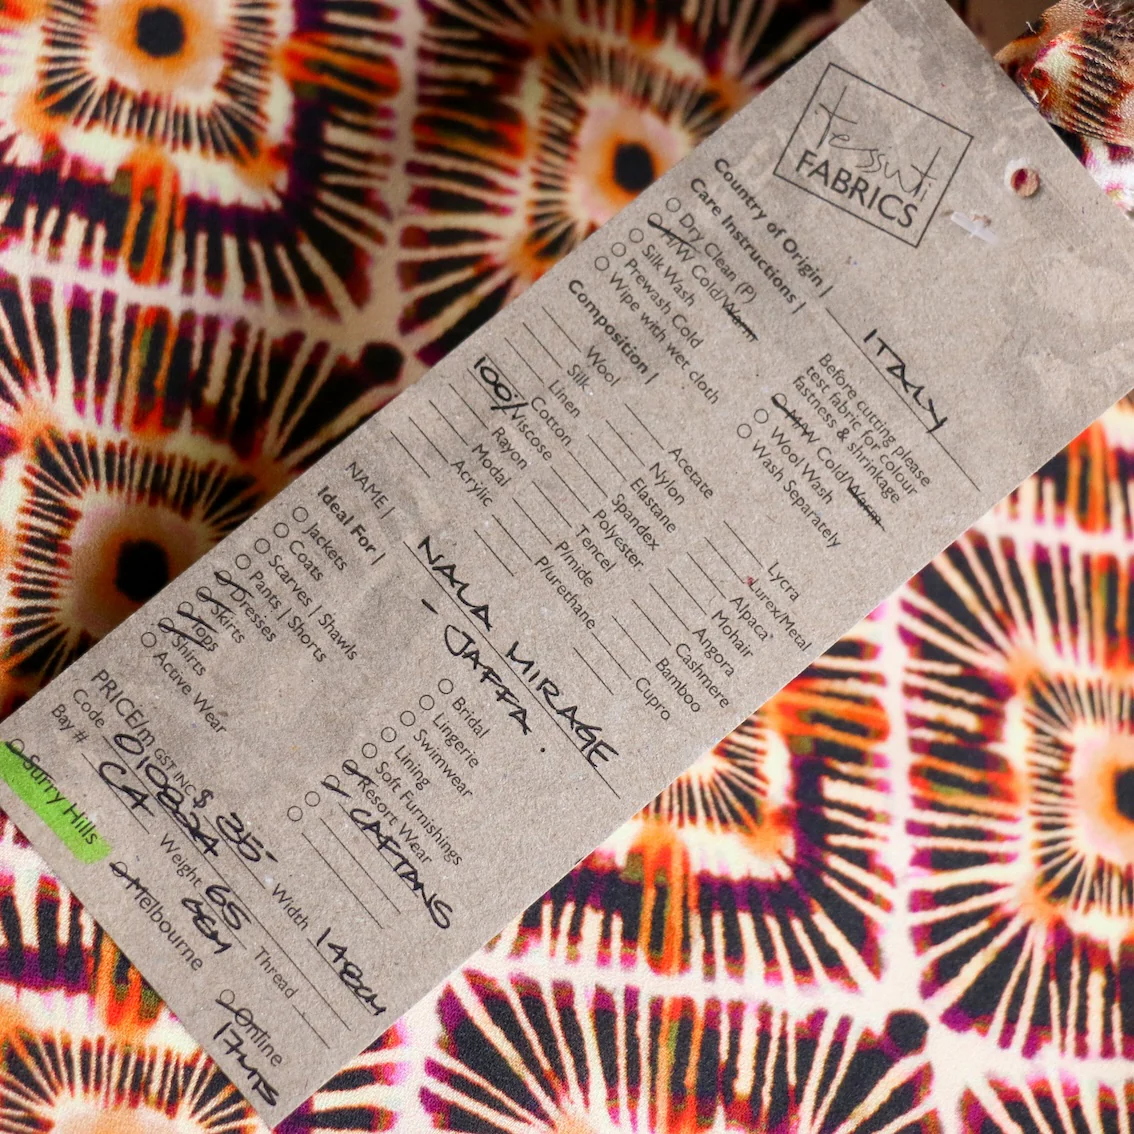 Tessuti
FABRICS
Country of Origin | ITALY
Care Instructions |
Dry Clean (P)
H/W Cold/Warm
Silk Wash
Prewash Cold
Wipe with wet cloth
Before cutting please
test fabric for colour
fastness & shrinkage
M/W Cold/Warm
Wool Wash
Wash Separately
Composition |
Wool
Silk
Linen
Cotton
100% Viscose
Rayon
Modal
Acrylic
Acetate
Nylon
Elastane
Spandex
Polyester
Tencel
P/mide
Plurethane
Lycra
Lurex/Metal
Alpaca
Mohair
Angora
Cashmere
Bamboo
Cupro
NAME | NALA MIRAGE
- JAFFA.
Ideal For |
Jackets
Coats
Scarves | Shawls
Pants | Shorts
Dresses
Skirts
Tops
Shirts
Active Wear
Bridal
Lingerie
Swimwear
Lining
Soft Furnishings
Resort Wear
CAFTANS
PRICE/m GST INC $ 35- Width 148cm
Code 010824 Weight 65 GSM Thread
Bay # C4
Surry Hills Melbourne Online
17mts